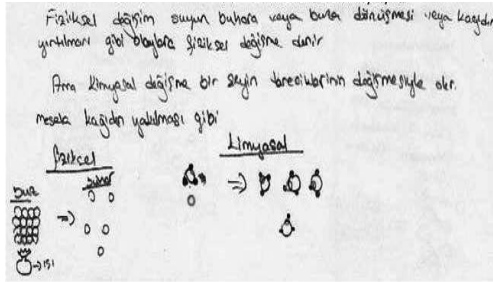 Fiziksel değişim suyun buhara veya buza dönüşmesi veya kağıdın
yırtılması gibi olaylara fiziksel değişme denir
Ama kimyasal değişme bir şeyin taneciklerinin değişmesiyle olur.
mesela kağıdın yakılması gibi
fiziksel
Kimyasal
buhar
buz
ısı